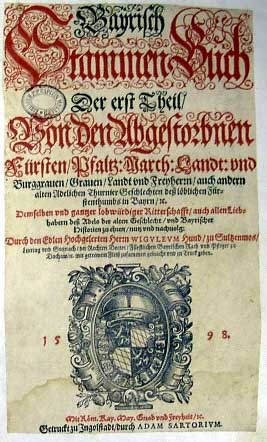 Bayrisch
Stammen Buch
Der erst Theil/
Von den Abgestorbnen
Fürsten/ Pfaltz: March: Landt: vnd
Burggrauen/ Grauen/ Landt vnd Freyherrn/ auch andern
alten Adelichen Thurnier Geschlechten deß löblichen Für-
stenthumbs in Bayrn/ ꝛc.
Demselben vnd gantzer lobwürdiger Ritterschafft/ auch allen Lieb-
habern deß Adels der alten Geschlecht/ vnd Bayrischer
Historien zu ehren/ nutz vnd nachuolg:
Durch den Edlen Hochgelerten Herrn WIGVLEVM Hund/ zu Sultzenmos/
der Rechten Doctor/ Fürstlichen Bayrischen Rath vnd Pfleger zu
Dachaw/ ꝛc. mit getrewem Fleiß zusammen gebracht vnd in Truck geben.
15 98.
Mit Röm. Kay. May. Gnad vnd Freyheit/ ꝛc.
Getruckt zu Ingolstadt/ durch ADAM SARTORIVM.